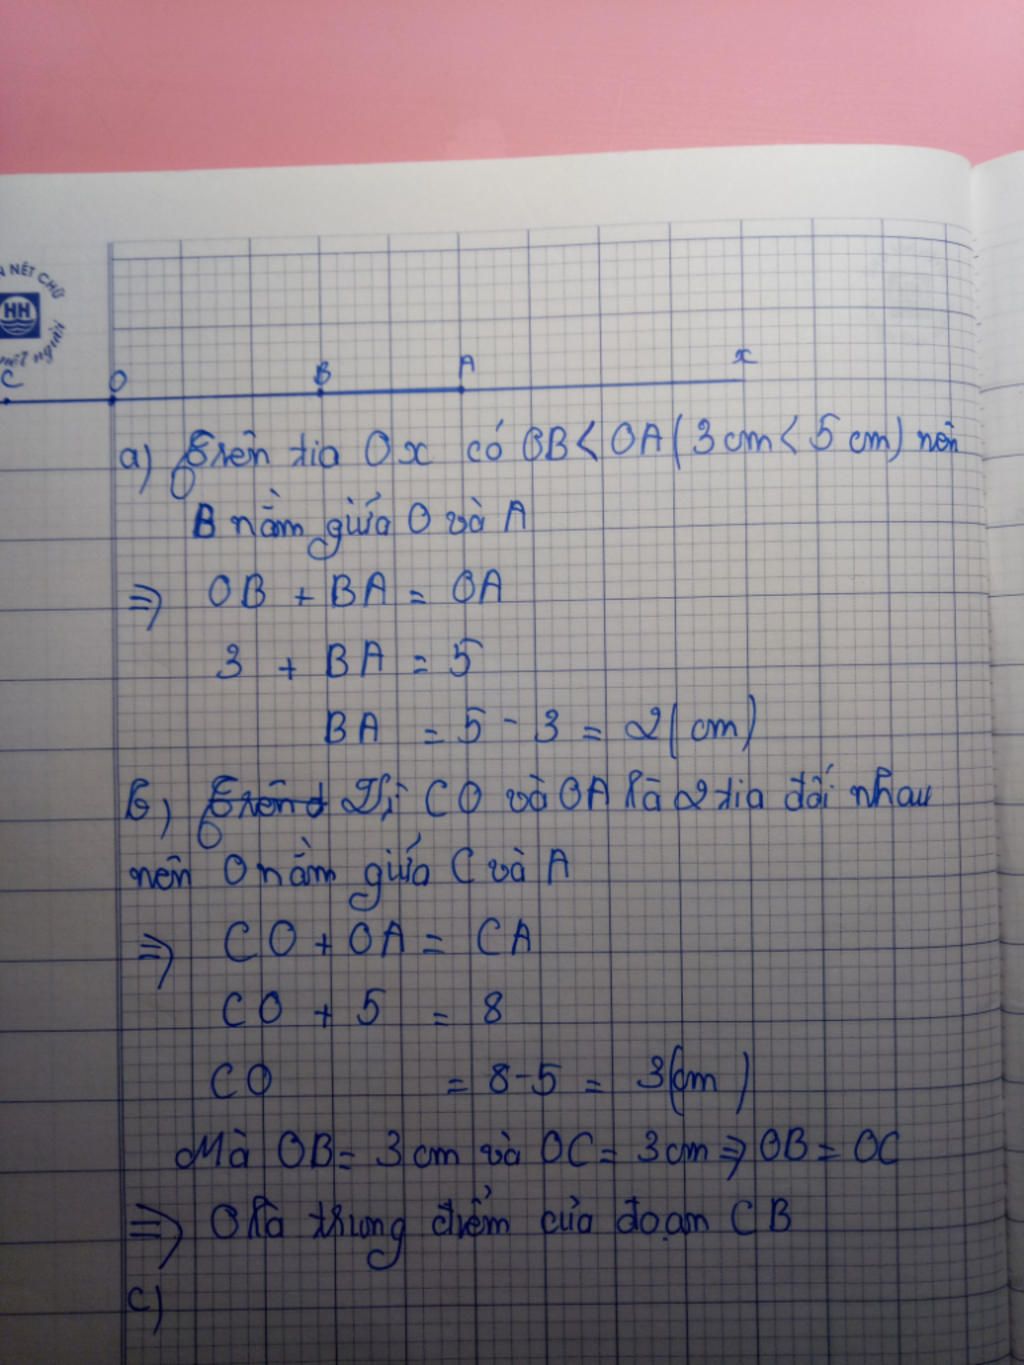 NÉT CHỮ
HH
C O B A x
a) Trên tia Ox có OB < OA (3 cm < 5 cm) nên
B nằm giữa O và A
=> OB + BA = OA
3 + BA = 5
BA = 5 - 3 = 2 (cm)
b) Trên t Vì CO và OA là 2 tia đối nhau
nên O nằm giữa C và A
=> CO + OA = CA
CO + 5 = 8
CO = 8-5 = 3 (cm)
Mà OB = 3 cm và OC = 3 cm => OB = OC
=> O là trung điểm của đoạn CB
c)